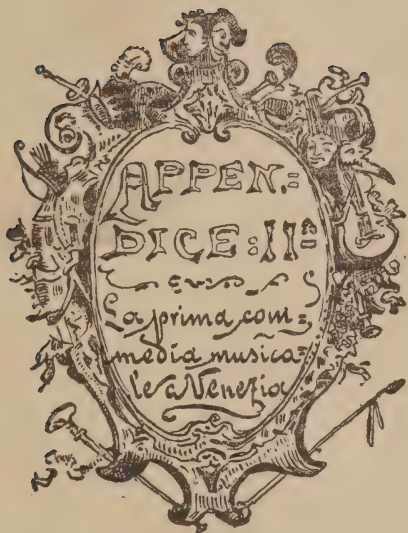 APPEN:
DICE:IIª
La prima com:
media musica:
le a Venezia